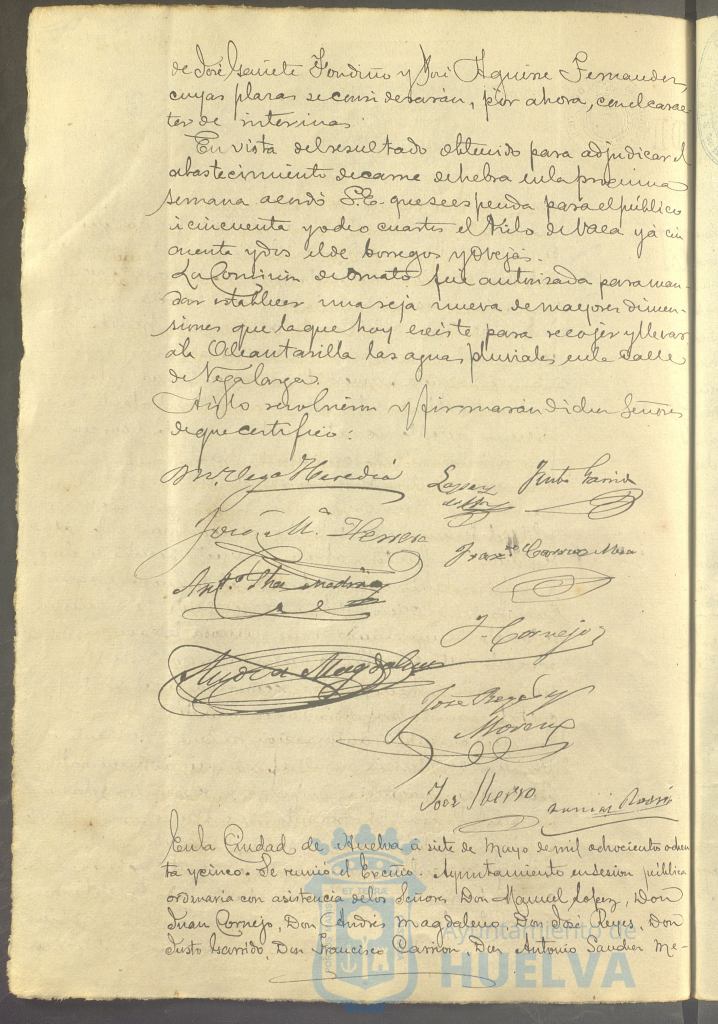 de José Gañete Fondiño y José Aguirre Fernandez,
cuyas plazas se considerarán, por ahora, con el carac-
ter de interinas.
En vista del resultado obtenido para adjudicar el
abastecimiento de carne de hebra en la proxima
semana acordó S.E. que se espenda para el público
á cincuenta y ocho cuartos el kilo de Vaca y á cin
cuenta y dos el de borregos y ovejas.
La Comision de Ornato fué autorizada para man-
dar establecer una reja nueva de mayores dimen-
siones que la que hoy existe para recojer y llevar
á la Alcantarilla las aguas pluviales en la calle
de Vega larga.
Así lo resolvieron y firmarán dichos Señores
de que certifico:
M. Vega Heredia
Lopez
Justo Garrido
José Mª Herrera
Franco Carrion
Anto Schez
J. Cornejo
Andres Magdaleno
José Reyes y
Moreno
José Iberro
En la Ciudad de Huelva á siete de Mayo de mil ochocientos ochen
ta y cinco. Se reunió el Excmo. Ayuntamiento en sesion pública
ordinaria con asistencia de los Señores Don Manuel Lopez, Don
Juan Cornejo, Don Andrés Magdaleno, Don José Reyes, Don
Justo Garrido, Don Francisco Carrion, Don Antonio Sanchez Me-
Ayuntamiento de
HUELVA